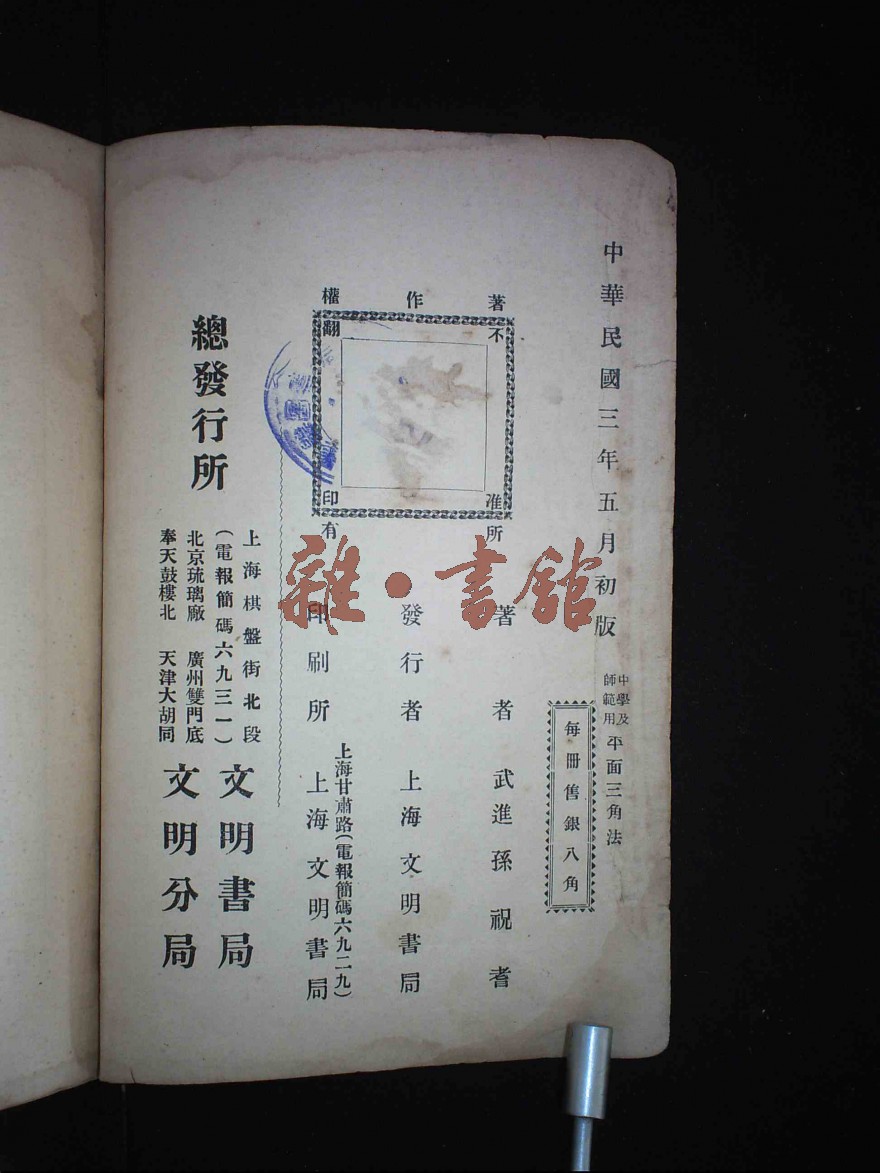 中華民國三年五月初版
中學及
師範用
平面三角法
每冊售銀八角
著作權
所有
不准
翻印
著者 武進孫祝耆
發行者 上海文明書局
上海甘肅路(電報簡碼六九二九)
印刷所 上海文明書局
總發行所
上海棋盤街北段
(電報簡碼六九三一)
文明書局
北京琉璃廠 廣州雙門底
奉天鼓樓北 天津大胡同
文明分局
雜·書館